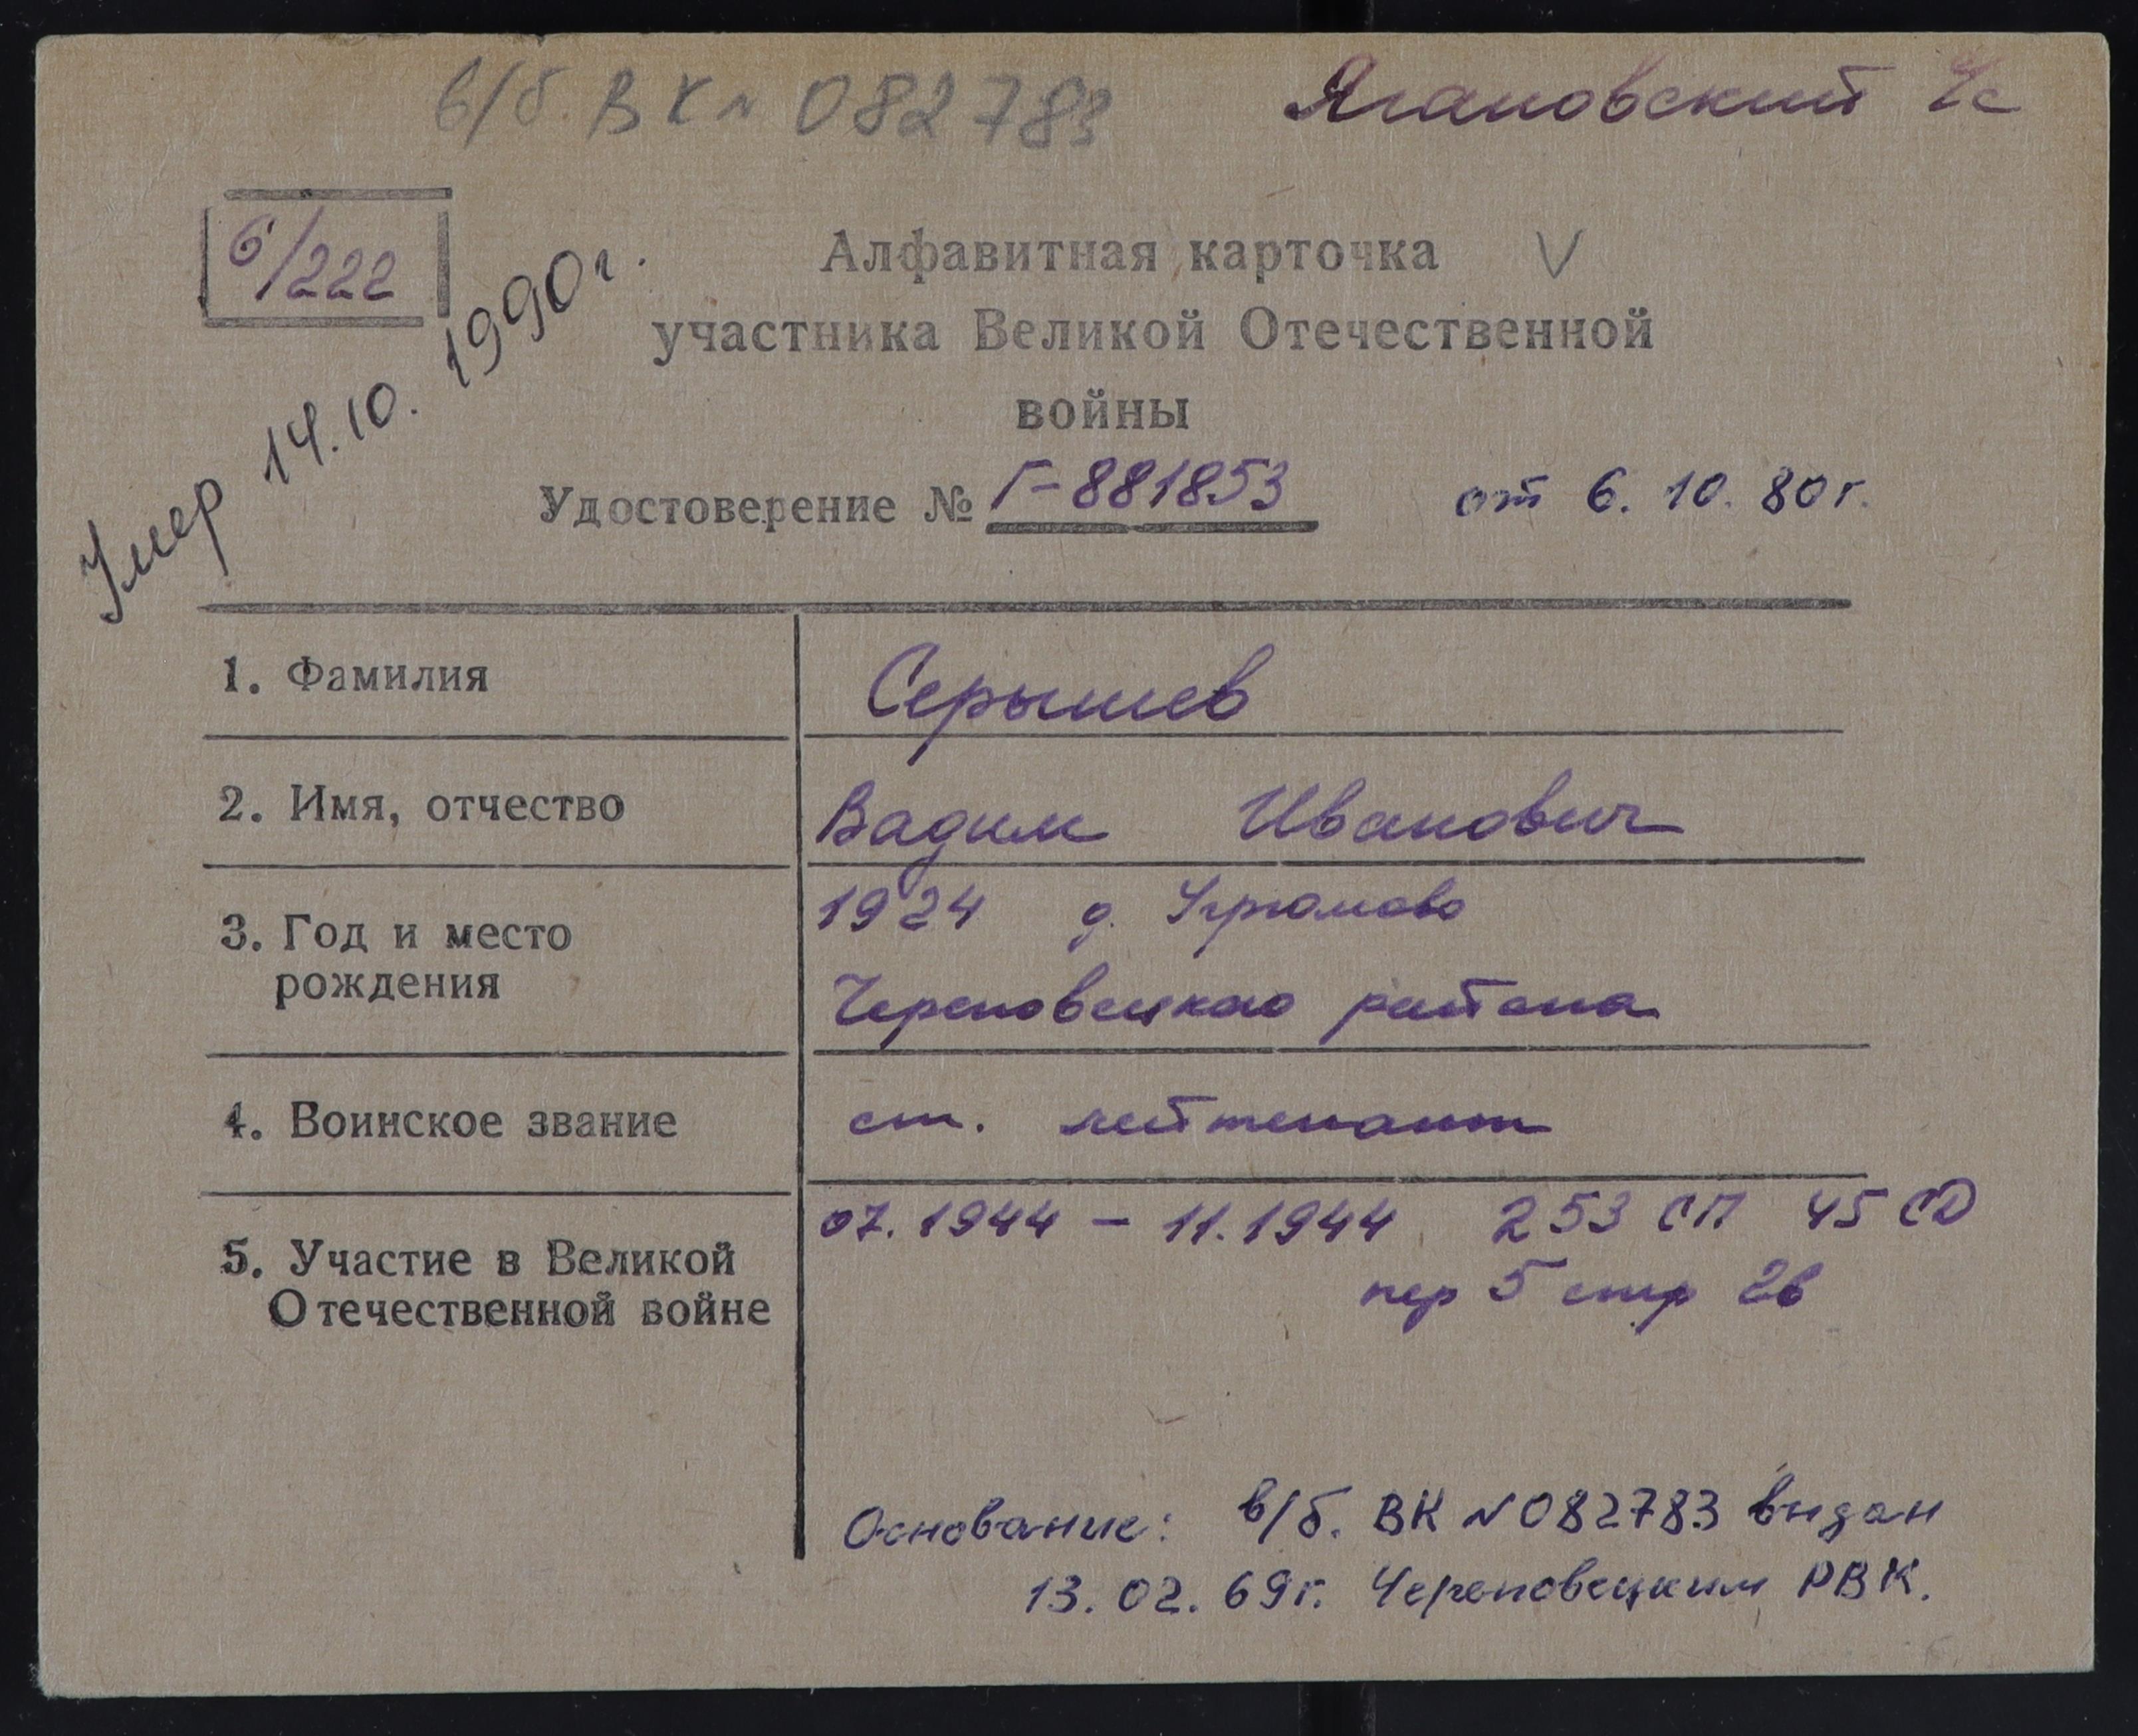 в/б. ВК N 082783
Ягановский с/с
6/222
Умер 14.10.1990г.
Алфавитная карточка V
участника Великой Отечественной
войны
Удостоверение № Г-881853 от 6.10.80г.
1. Фамилия Серышев
2. Имя, отчество Вадим Иванович
3. Год и место 1924 д. Угрюмово
рождения Череповецкого района
4. Воинское звание ст. лейтенант
07.1944 – 11.1944 253 СП 45 СД
5. Участие в Великой
пер 5 стр 26
Отечественной войне
Основание: в/б. ВК N 082783 выдан
13.02.69г. Череповецким РВК.